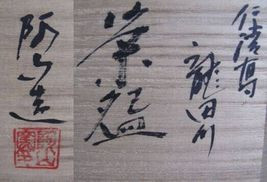 仁清写
龍田川
茶碗
阿山造